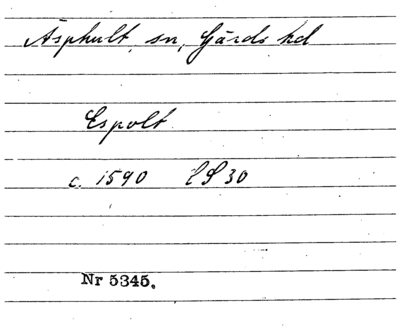 Äsphult sn, Gärds hd
Espolt
c. 1590 ES 30
Nr 5345.